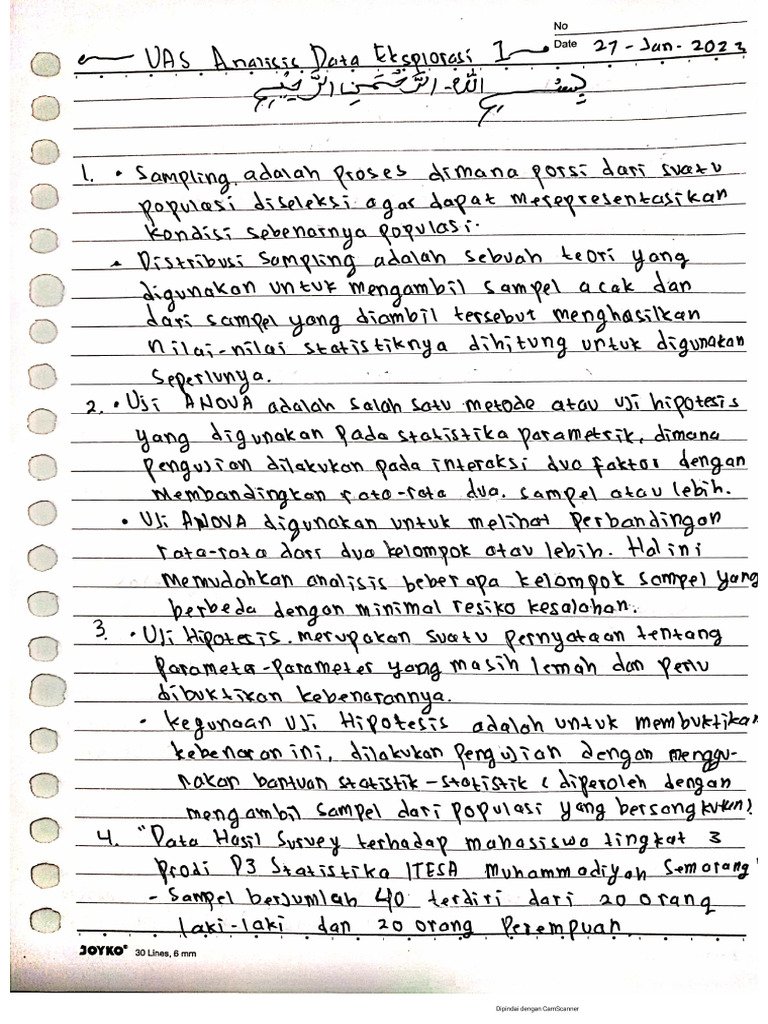 No
UAS Analisis Data Eksplorasi I
Date 27-Jan-2023
بِسْــــمِ اللهِ الرَّحْمَنِ الرَّحِيْمِ
1. • Sampling adalah proses dimana porsi dari suatu
populasi diseleksi agar dapat merepresentasikan
kondisi sebenarnya populasi.
• Distribusi Sampling adalah sebuah teori yang
digunakan untuk mengambil sampel acak dan
dari sampel yang diambil tersebut menghasilkan
nilai-nilai statistiknya dihitung untuk digunakan
seperlunya.
2. • Uji ANOVA adalah salah satu metode atau uji hipotesis
yang digunakan pada statistika parametrik, dimana
pengujian dilakukan pada interaksi dua faktor dengan
membandingkan rata-rata dua. sampel atau lebih.
• Uji ANOVA digunakan untuk melihat perbandingan
rata-rata dari dua kelompok atau lebih. Hal ini
memudahkan analisis beberapa kelompok sampel yang
berbeda dengan minimal resiko kesalahan.
3. • Uji Hipotesis. merupakan suatu pernyataan tentang
parameter-parameter yang masih lemah dan perlu
dibuktikan kebenarannya.
• kegunaan Uji Hipotesis adalah untuk membuktikan
kebenaran ini, dilakukan pengujian dengan menggu-
nakan bantuan statistik-statistik (diperoleh dengan
mengambil sampel dari populasi yang bersangkutan)
4. "Data Hasil Survey terhadap mahasiswa tingkat 3
Prodi D3 Statistika ITESA Muhammadiyah Semarang"
- Sampel berjumlah 40 terdiri dari 20 orang
laki-laki dan 20 orang Perempuan.
JOYKO® 30 Lines, 6 mm
Dipindai dengan CamScanner